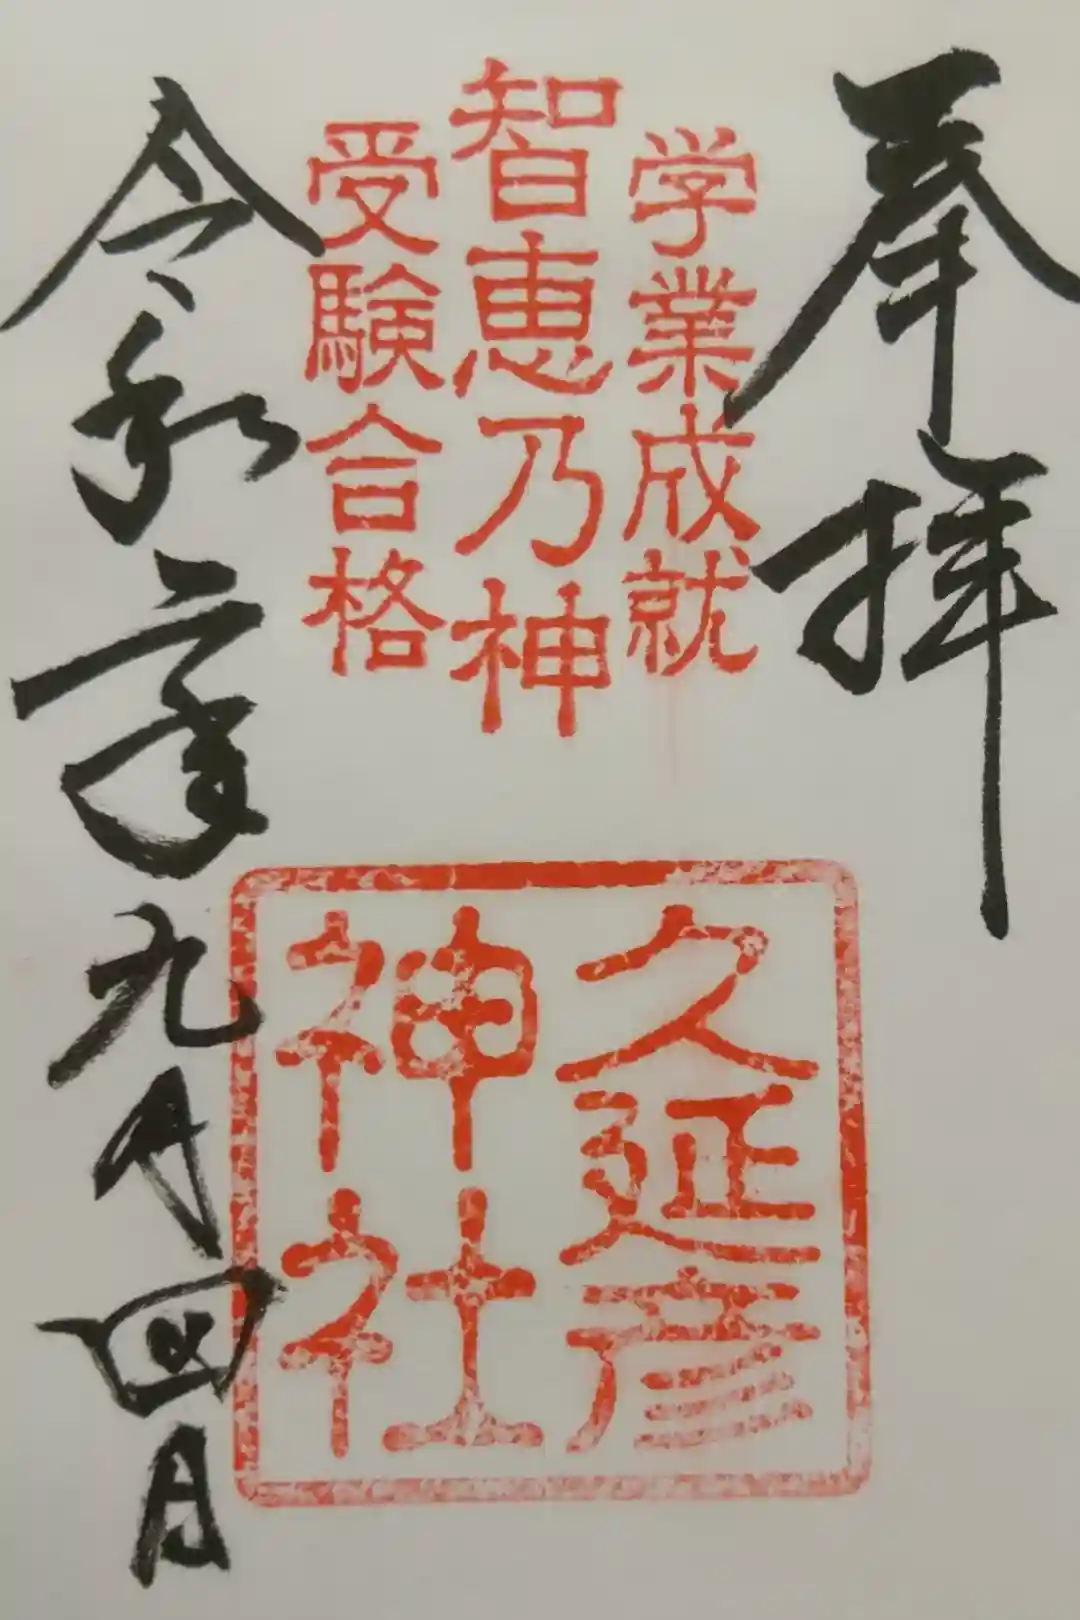 奉拝
学業成就
智恵乃神
受験合格
久延彦
神社
令和二年九月四日